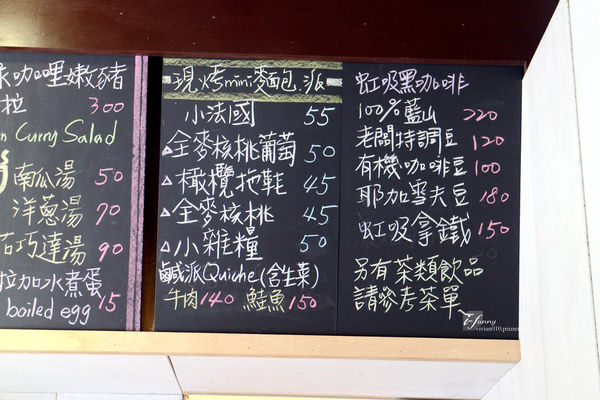 咖哩嫩豬
拉 300
Curry Salad
南瓜湯 50
洋蔥湯 70
巧達湯 90
拉加水煮蛋
boiled egg 15
現烤mini麵包.派
小法國 55
△全麥核桃葡萄 50
△橄欖拖鞋 45
△全麥核桃 45
△小雜糧 50
鹹派Quiche(含生菜)
牛肉140 鮭魚150
虹吸黑咖啡
100%藍山 220
老闆特調豆 120
有機咖啡豆 100
耶加雪夫豆 180
虹吸拿鐵 150
另有茶類飲品
請參考茶單
i-funny